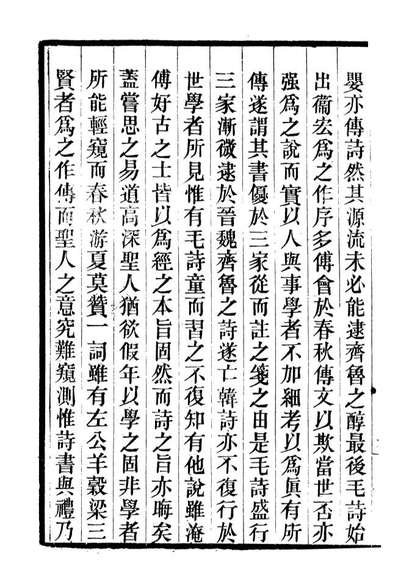 嬰亦傳詩然其源流未必能逮齊魯之醇最後毛詩始
出衞宏爲之作序多傅會於春秋傳文以欺當世否亦
强爲之說而實以人與事學者不加細考以爲眞有所
傳遂謂其書優於三家從而註之箋之由是毛詩盛行
三家漸微逮於晉魏齊魯之詩遂亡韓詩亦不復行於
世學者所見惟有毛詩童而習之不復知有他說雖淹
傅好古之士皆以爲經之本旨固然而詩之旨亦晦矣
蓋嘗思之易道高深聖人猶欲假年以學之固非學者
所能輕窺而春秋游夏莫贊一詞雖有左公羊穀梁三
賢者爲之作傳而聖人之意究難窺測惟詩書與禮乃